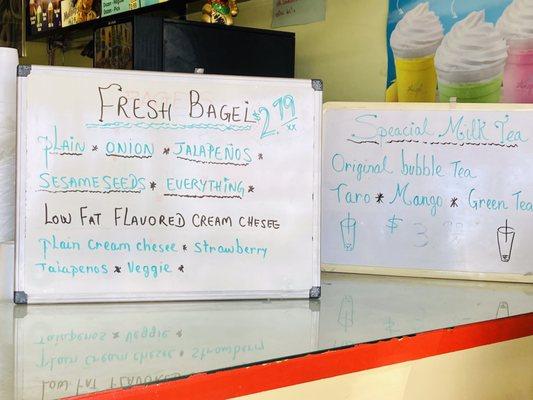 FRESH BAGEL $2.79
xx
PLAIN * ONION * JALAPEÑOS *
SESAME SEEDS * EVERYTHING *
LOW FAT FLAVORED CREAM CHESEE
Plain Cream chesee * Strawberry
Jalapenos * Veggie *
Speacial Milk Tea
Original bubble Tea
Taro * Mango * Green Tea
$3